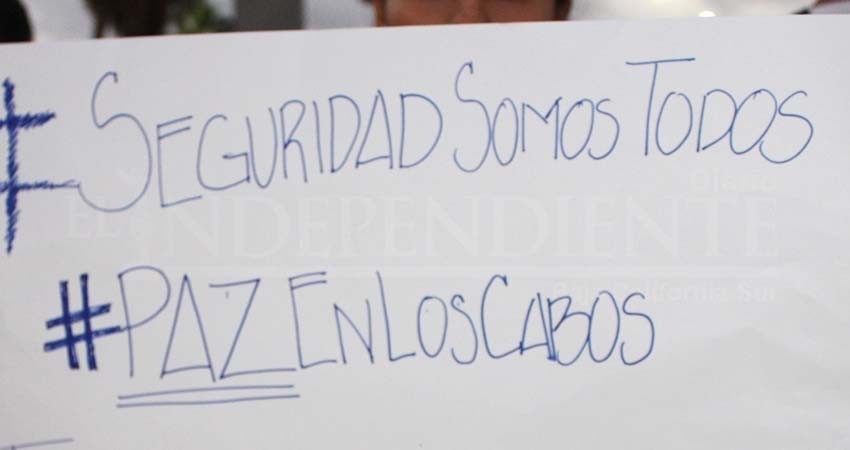 #SEGURIDADSOMOSTODOS
Diario
EL INDEPENDIENTE
Baja California Sur
#PAZENLOSCABOS